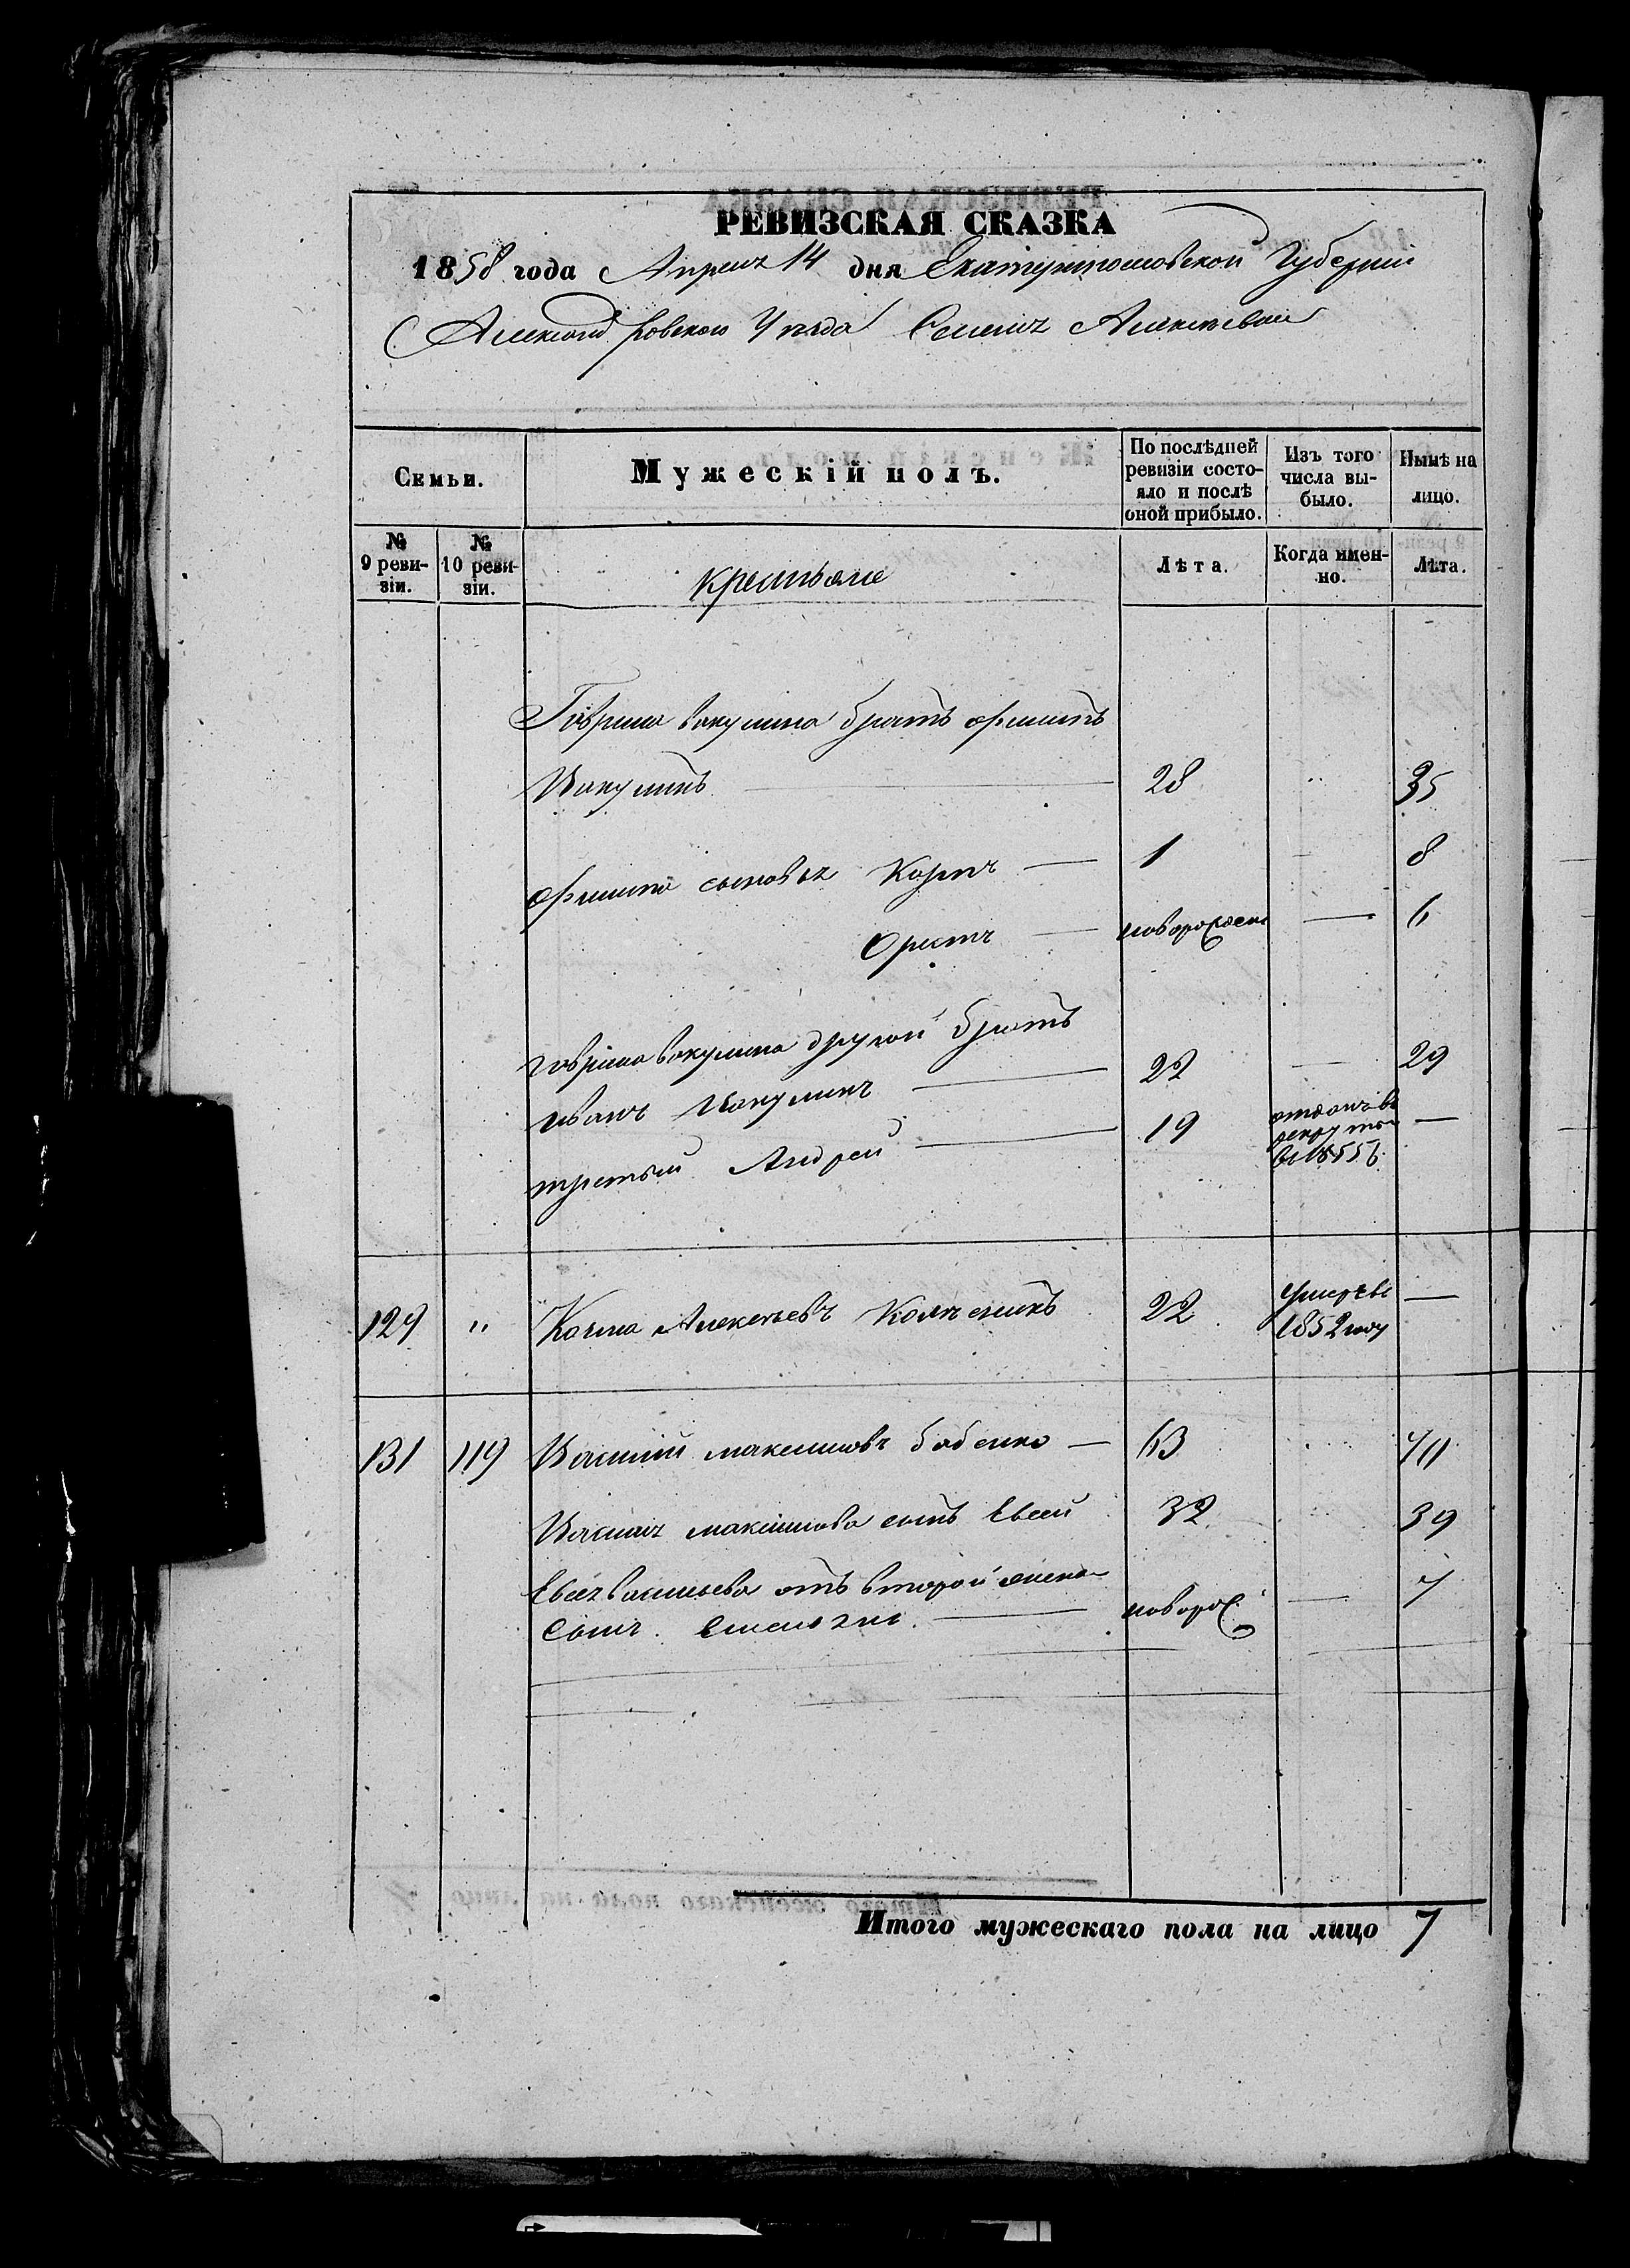 РЕВИЗСКАЯ СКАЗКА
1858 года Апреля 14 дня Екатеринославской Губернии
Александровского Уезда Селения Алексеевки
Семьи.
Мужескій полъ.
По послѣдней ревизіи состояло и послѣ оной прибыло.
Изъ того числа выбыло.
Нынѣ на лицо.
№ 9 ревизіи.
№ 10 ревизіи.
крестьяне
Лѣта.
Когда именно.
Лѣта.
Гаврила Вакулина братъ Филипъ
Вакулинъ 28 " 35
Филипа сыновья Карпъ — 1 8
новорожден — 6
Гаврила Вакулина другой братъ
Иванъ Вакулинъ — 22 — 29
третий Андрей — 19 отданъ въ рекруты въ 1855 г. —
129 " Козма Алексеевъ 22 умеръ въ 1852 году —
131 119 Василий Максимовъ Бабенко — 63 70
Василия Максимова сынъ Евсей 32 39
Евсея Васильева отъ второй жены
сынъ — новорож — 7
Итого мужескаго пола на лицо 7